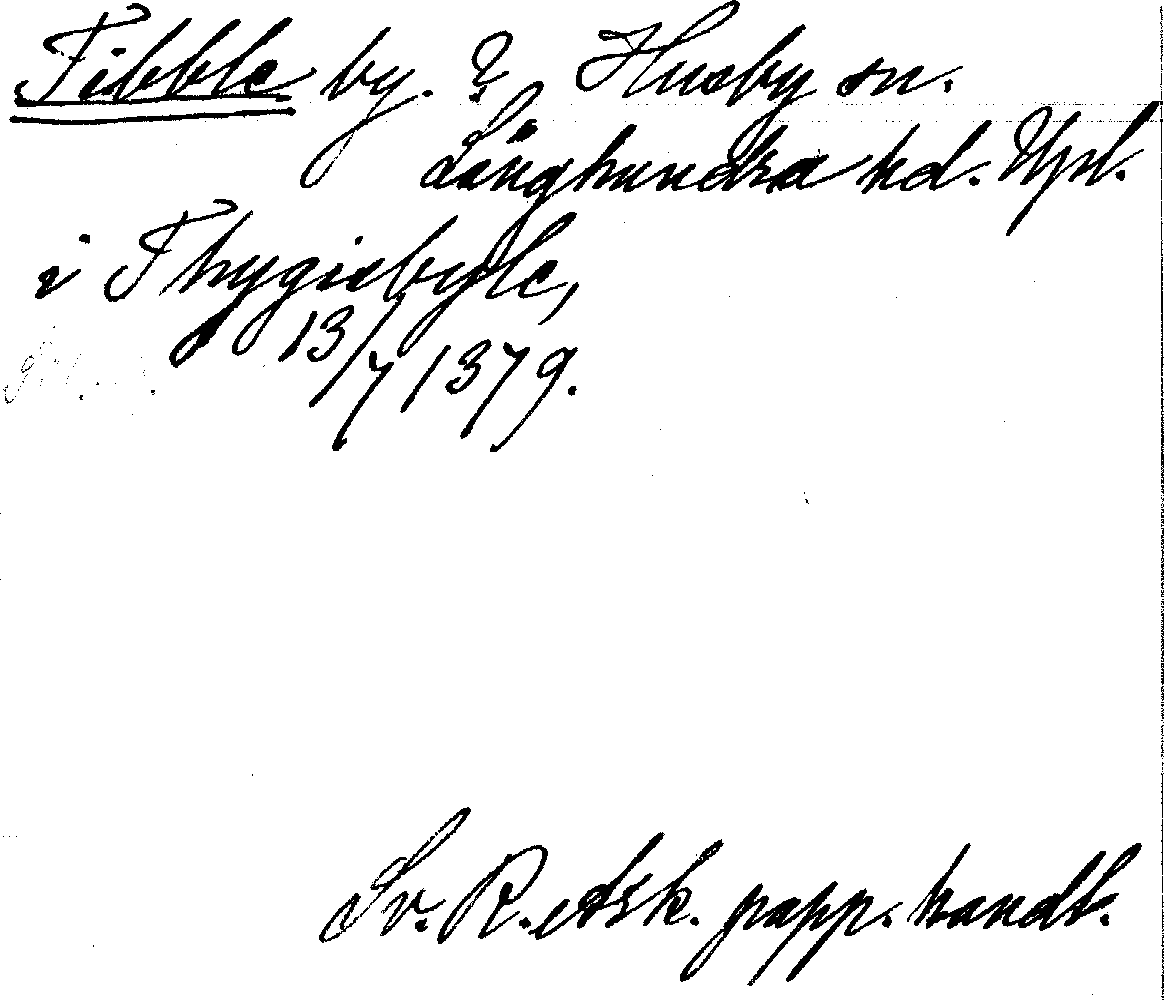 Tibble by. ? Husby sn.
Långhundra hd. Upl.
i Thygisbyle,
13/7 1379.
Sv. R. papp. handl.